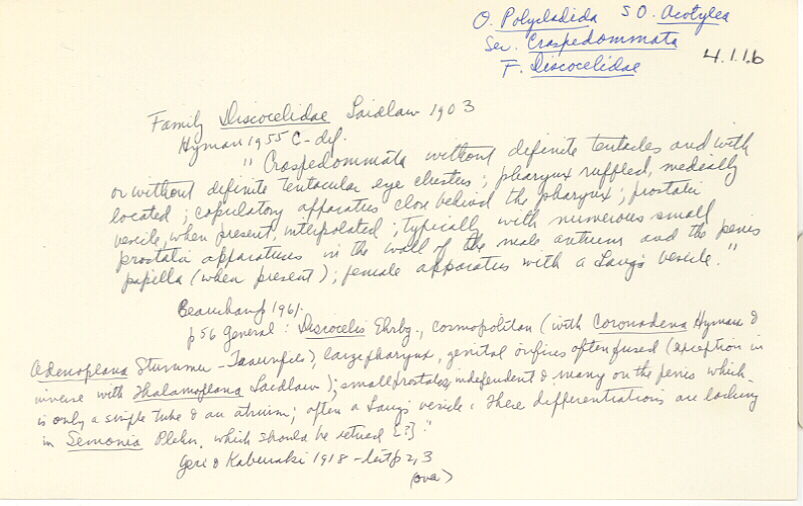 O. Polycladida S O. Acotylea
Ser. Craspedommata
F. Discocelidae
4.1.1.6
Family Discocelidae Laidlaw 1903
Hyman 1955 C - def.
"Craspedommata without definite tentacles and with
or without definite tentacular eye clusters; pharynx ruffled, medially
located; copulatory apparatus close behind the pharynx; prostatic
vesicle, when present, interpolated; typically with numerous small
prostatic apparatuses in the wall of the male antrum and the penis
papilla (when present); female apparatus with a Lang's vesicle."
Beauchamp 1961.
p 56 General: Discocelis Ehrbg., cosmopolitan (with Coronadena Hyman &
Adenoplana Stummer-Traunfels), large pharynx, genital orifices often fused (exception in
inverse with Thalamoplana Laidlaw); small prostates, independent & many on the penis which
is only a simple tube & an atrium; often a Lang's vesicle. These differentiations are lacking
in Semonia Plehn, which should be [?]."
& Kaburaki 1918 - p 2, 3
(over)